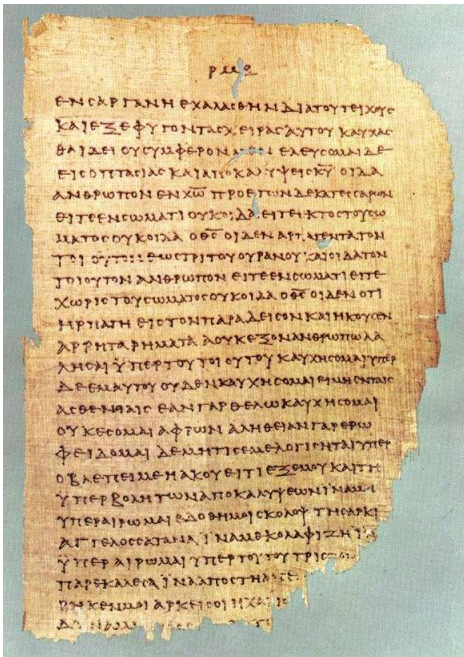 ρμε
ΕΝ ϹΑΡΓΑΝΗ ΕΧΑΛΑϹΘΗΝ ΔΙΑ ΤΟΥ ΤΕΙΧΟΥϹ
ΚΑΙ ΕΞΕΦΥΓΟΝ ΤΑϹ ΧΕΙΡΑϹ ΑΥΤΟΥ ΚΑΥΧΑϹ
ΘΑΙ ΔΕΙ ΟΥ ϹΥΜΦΕΡΟΝ ΜΕΝ ΕΛΕΥϹΟΜΑΙ ΔΕ
ΕΙϹ ΟΠΤΑϹΙΑϹ ΚΑΙ ΑΠΟΚΑΛΥΨΕΙϹ Κ̅Υ̅ ΟΙΔΑ
ΑΝΘΡΩΠΟΝ ΕΝ Χ̅Ω̅ ΠΡΟ ΕΤΩΝ ΔΕΚΑΤΕϹϹΑΡΩΝ
ΕΙΤΕ ΕΝ ϹΩΜΑΤΙ ΟΥΚ ΟΙΔΑ ΕΙΤΕ ΕΚΤΟϹ ΤΟΥ ϹΩ
ΜΑΤΟϹ ΟΥΚ ΟΙΔΑ Ο Θ̅Ϲ̅ ΟΙΔΕΝ ΑΡΠΑΓΕΝΤΑ ΤΟΝ
ΤΟΙΟΥΤΟΝ ΕΩϹ ΤΡΙΤΟΥ ΟΥΡΑΝΟΥ ΚΑΙ ΟΙΔΑ ΤΟΝ
ΤΟΙΟΥΤΟΝ ΑΝΘΡΩΠΟΝ ΕΙΤΕ ΕΝ ϹΩΜΑΤΙ ΕΙΤΕ
ΧΩΡΙϹ ΤΟΥ ϹΩΜΑΤΟϹ ΟΥΚ ΟΙΔΑ Ο Θ̅Ϲ̅ ΟΙΔΕΝ ΟΤΙ
ΗΡΠΑΓΗ ΕΙϹ ΤΟΝ ΠΑΡΑΔΕΙϹΟΝ ΚΑΙ ΗΚΟΥϹΕΝ
ΑΡΡΗΤΑ ΡΗΜΑΤΑ Α ΟΥΚ ΕΞΟΝ ΑΝΘΡΩΠΩ ΛΑ
ΛΗϹΑΙ ΫΠΕΡ ΤΟΥ ΤΟΙΟΥΤΟΥ ΚΑΥΧΗϹΟΜΑΙ ΥΠΕΡ
ΔΕ ΕΜΑΥΤΟΥ ΟΥΔΕΝ ΚΑΥΧΗϹΟΜΑΙ ΕΙ ΜΗ ΕΝ ΤΑΙϹ
ΑϹΘΕΝΕΙΑΙϹ ΕΑΝ ΓΑΡ ΘΕΛΩ ΚΑΥΧΗϹΟΜΑΙ
ΟΥΚ ΕϹΟΜΑΙ ΑΦΡΩΝ ΑΛΗΘΕΙΑΝ ΓΑΡ ΕΡΩ
ΦΕΙΔΟΜΑΙ ΔΕ ΜΗ ΤΙϹ ΕΜΕ ΛΟΓΙϹΗΤΑΙ ΥΠΕΡ
Ο ΒΛΕΠΕΙ ΜΕ Η ΑΚΟΥΕΙ ΤΙ ΕΞ ΕΜΟΥ ΚΑΙ ΤΗ
ΫΠΕΡΒΟΛΗ ΤΩΝ ΑΠΟΚΑΛΥΨΕΩΝ ΪΝΑ Μ
ΥΠΕΡΑΙΡΩΜΑΙ ΕΔΟΘΗ ΜΟΙ ϹΚΟΛΟΨ ΤΗ ϹΑΡΚΙ
ΑΓΓΕΛΟϹ ϹΑΤΑΝΑ ΪΝΑ ΜΕ ΚΟΛΑΦΙΖΗ
ΫΠΕΡΑΙΡΩΜΑΙ ΥΠΕΡ ΤΟΥΤΟΥ ΤΡΙϹ
ΠΑΡΕΚΑΛΕϹΑ ΪΝΑ ΑΠΟϹΤΗ
ΡΗΚΕΝ ΜΟΙ ΑΡΚΕΙ ϹΟΙ Η ΧΑΡΙϹ